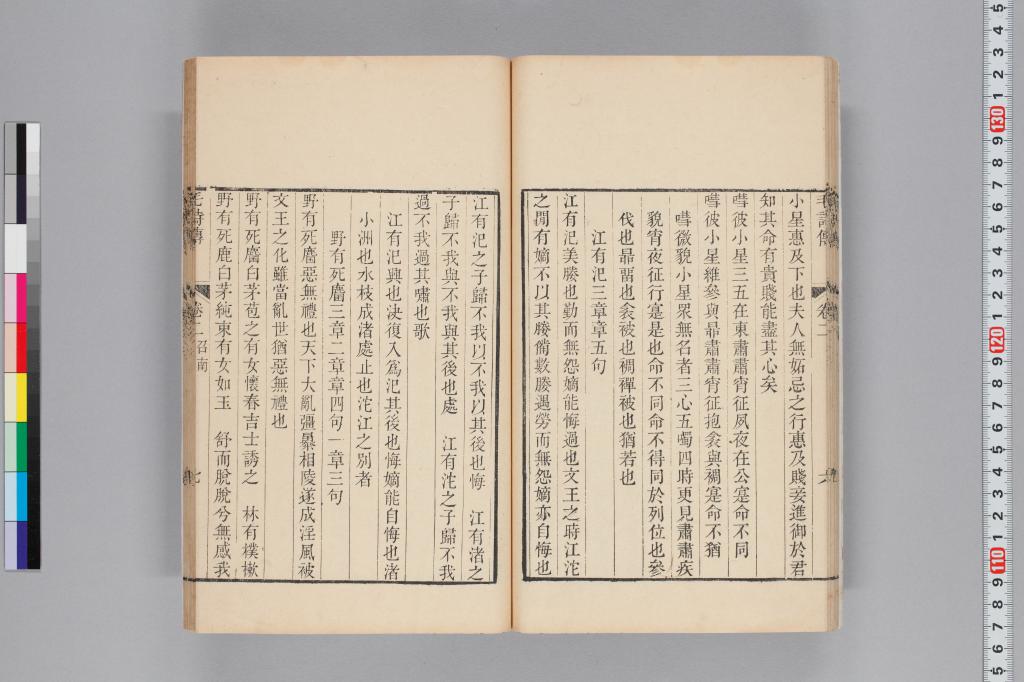 小星惠及下也夫人無妬忌之行惠及賤妾進御於君
知其命有貴賤能盡其心矣
嘒彼小星三五在東肅肅宵征夙夜在公寔命不同
嘒彼小星維參與昴肅肅宵征抱衾與裯寔命不猶
嘒微貌小星眾無名者三心五噣四時更見肅肅疾
貌宵夜征行寔是也命不同命不得同於列位也參
伐也昴畱也衾被也裯襌被也猶若也
江有汜三章章五句
江有汜美媵也勤而無怨嫡能悔過也文王之時江沱
之閒有嫡不以其媵備數媵遇勞而無怨嫡亦自悔也
江有汜之子歸不我以不我以其後也悔　江有渚之
子歸不我與不我與其後也處　江有沱之子歸不我
過不我過其嘯也歌
江有汜興也決復入爲汜其後也悔嫡能自悔也渚
小洲也水枝成渚處止也沱江之別者
野有死麕三章二章章四句一章三句
野有死麕惡無禮也天下大亂彊暴相陵遂成淫風被
文王之化雖當亂世猶惡無禮也
野有死麕白茅苞之有女懷春吉士誘之　林有樸樕
野有死鹿白茅純束有女如玉　舒而脫脫兮無感我
毛詩傳　卷二 召南　七